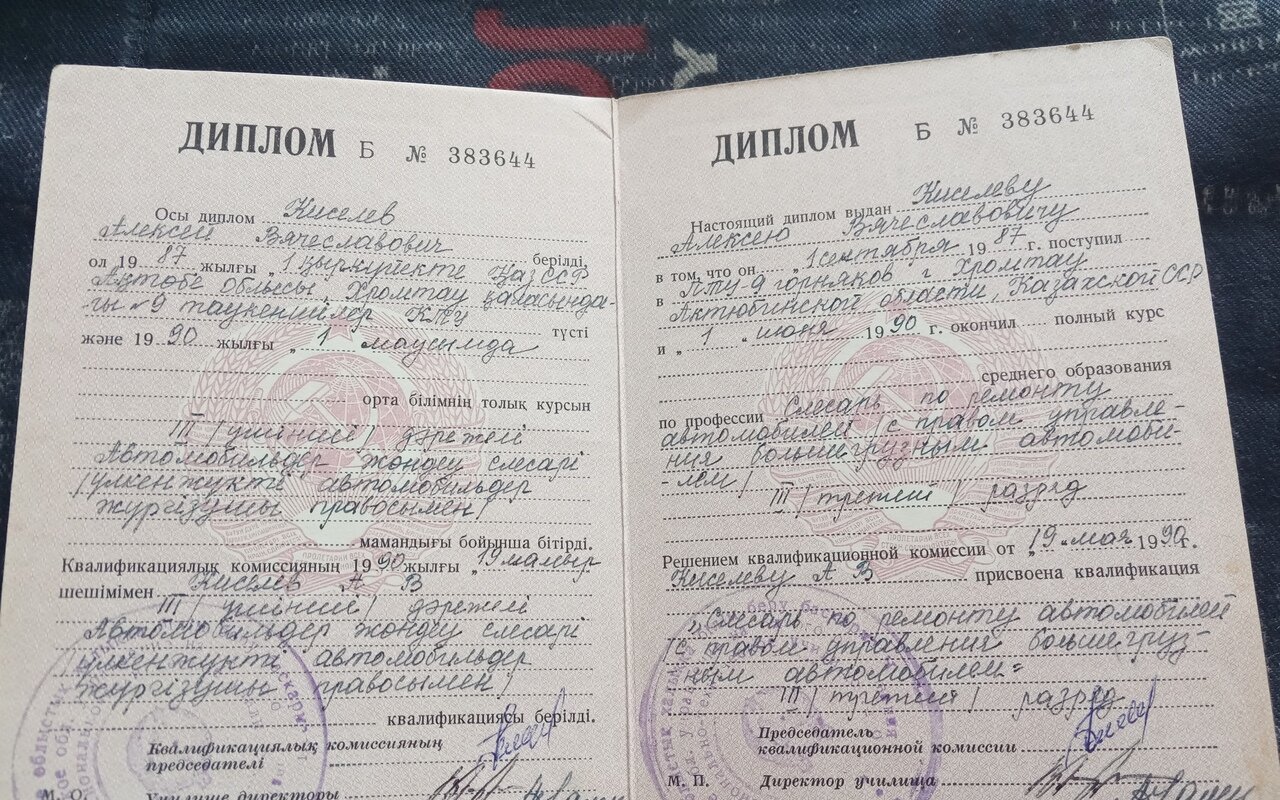 ДИПЛОМ Б № 383644
Осы диплом Киселев
Алексей Вячеславович берілді,
ол 1987 жылғы „1 қыркүйекте Қаз ССР
Ақтөбе облысы, Хромтау қаласында-
ғы №9 таукеншілер КТУ түсті
және 1990 жылғы „ 1 маусымда
орта білімнің толық курсын
III /үшінші/ дәрежелі
Автомобильдер жөндеу слесарі
/үлкенжүкті автомобильдер
жүргізушы правосымен/
мамандығы бойынша бітірді.
Квалификациялық комиссияның 1990 жылғы „19 мамыр
шешімімен Киселев А В
III /үшінші/ дәрежелі
Автбмобильдер жөндеу слесарі
/үлкенжүкті автомобильдер
жүргізушы правосымен/
квалификациясы берілді.
Квалификациялық комиссияның
председателі
М. О. Училище директоры
ДИПЛОМ Б № 383644
Настоящий диплом выдан Киселеву
Алексею Вячеславовичу
в том, что он „ 1 сентября 1987 г. поступил
в ПТУ-9 горняков г Хромтау
Актюбинской области, Казахской ССР
и „ 1 " июня 1990 г. окончил полный курс
среднего образования
по профессии Слесарь по ремонту
автомобилей /с правом управле-
ния большегрузным автомоби-
-лем/
III /третий/ разряд
Решением квалификационной комиссии от „19" мая 1990 г.
Киселеву А В присвоена квалификация
„Слесарь по ремонту автомобилей
/с правом управления большегруз-
ным автомобилем=
III /третий/ разряд
Председатель
квалификационной комиссии
М. П. Директор училища